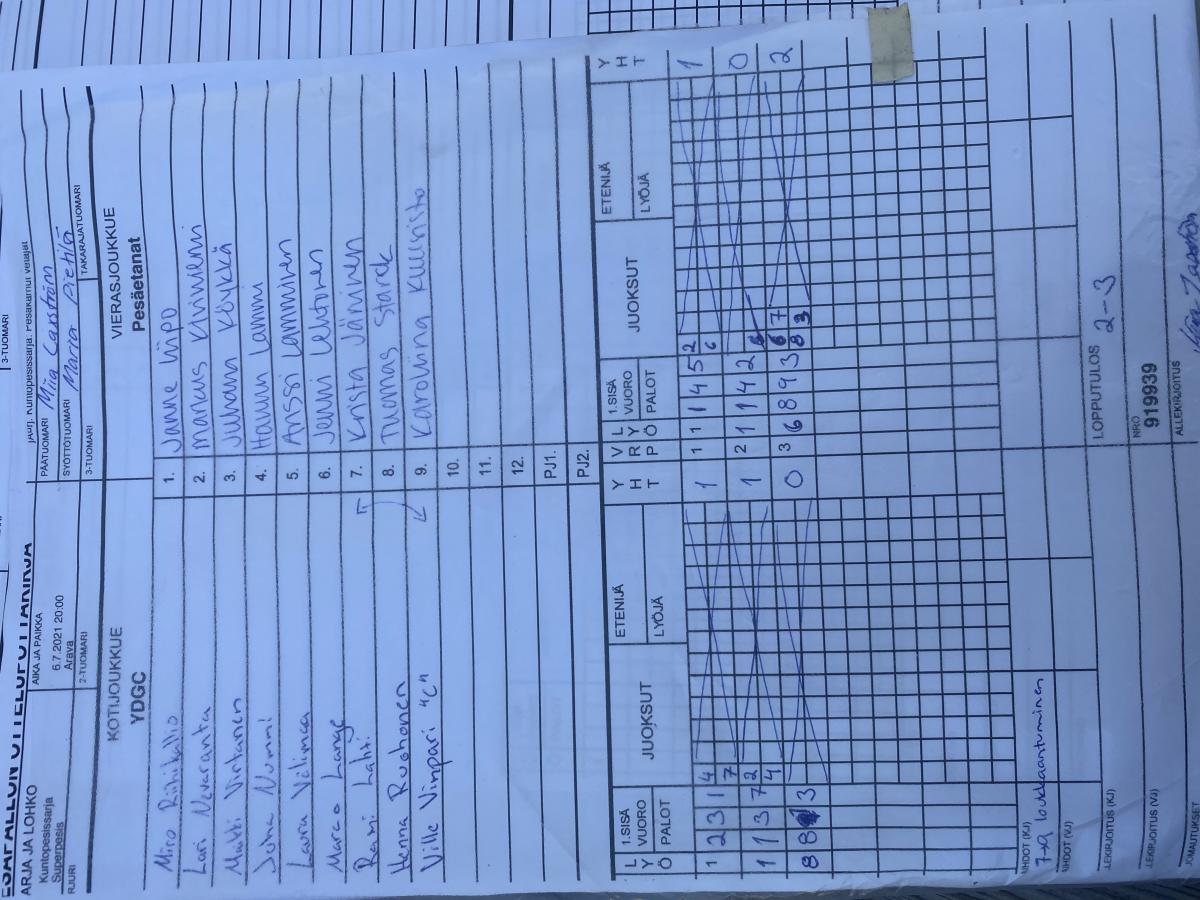 ESÄPALLON OTTELUPÖYTÄKIRJA
ARJA JA LOHKO
Kuntopesissarja
Superpesis
AIKA JA PAIKKA
6.7.2021 20:00
Arava
PÄÄTUOMARI Mia Carström
SYÖTTÖTUOMARI Maria Pietilä
3-TUOMARI
RJURI
2-TUOMARI
3-TUOMARI
TAKARAJATUOMARI
KOTIJOUKKUE
YDGC
VIERASJOUKKUE
Pesäetanat
Miro Riihikallio 1. Janne Liipo
Lari Nevaranta 2. Marcus Kiviniemi
Matti Virtanen 3. Juhana Köykkä
Juha Nummi 4. Hannu Lammi
Laura Välimaa 5. Anssi Lamminen
Marco Lange 6. Jenni Lehtonen
Rami Lahti 7. Krista Jänninen
Henna Ruohonen 8. Tuomas Starck
Ville Vimpari "C" 9. Karoliina Kuunisto
10.
11.
12.
PJ1.
PJ2.
LYÖ 1.SISÄ VUORO PALOT JUOKSUT ETENIJÄ LYÖJÄ YHT VRP LYÖ 1.SISÄ VUORO PALOT JUOKSUT ETENIJÄ LYÖJÄ YHT
1 2 3 1 4 7 1 1 1 1 4 5 2 6 1
1 1 3 7 2 4 1 2 1 1 4 2 0
8 8 3 0 3 6 8 9 3 6 7 8 3 2
HDOT (KJ)
7-9 loukkaantuminen
HDOT (VJ)
LOPPUTULOS 2-3
LEKIRJOITUS (KJ)
LEKIRJOITUS (VJ)
NRO
919939
ALLEKIRJOITUS